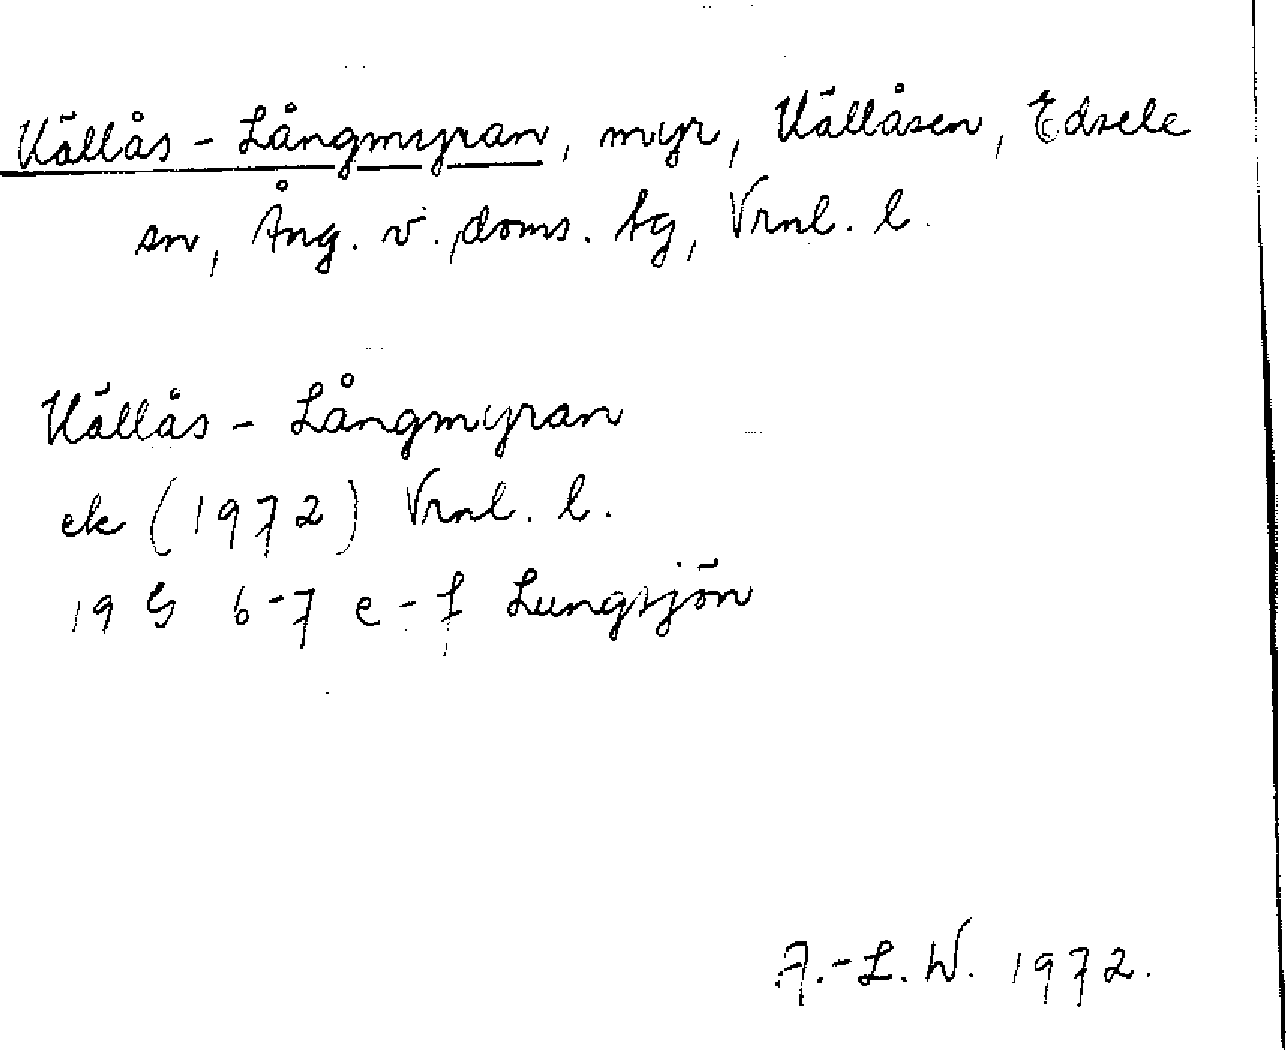 Källås - Långmyran, myr, Källåsen, Edsele
sn, Ång. v. doms. tg, Vrnl. l.
Källås - Långmyran
ek (1972) Vrnl. l.
19 G 6-7 e-f Lungsjön
A.-L. W. 1972.